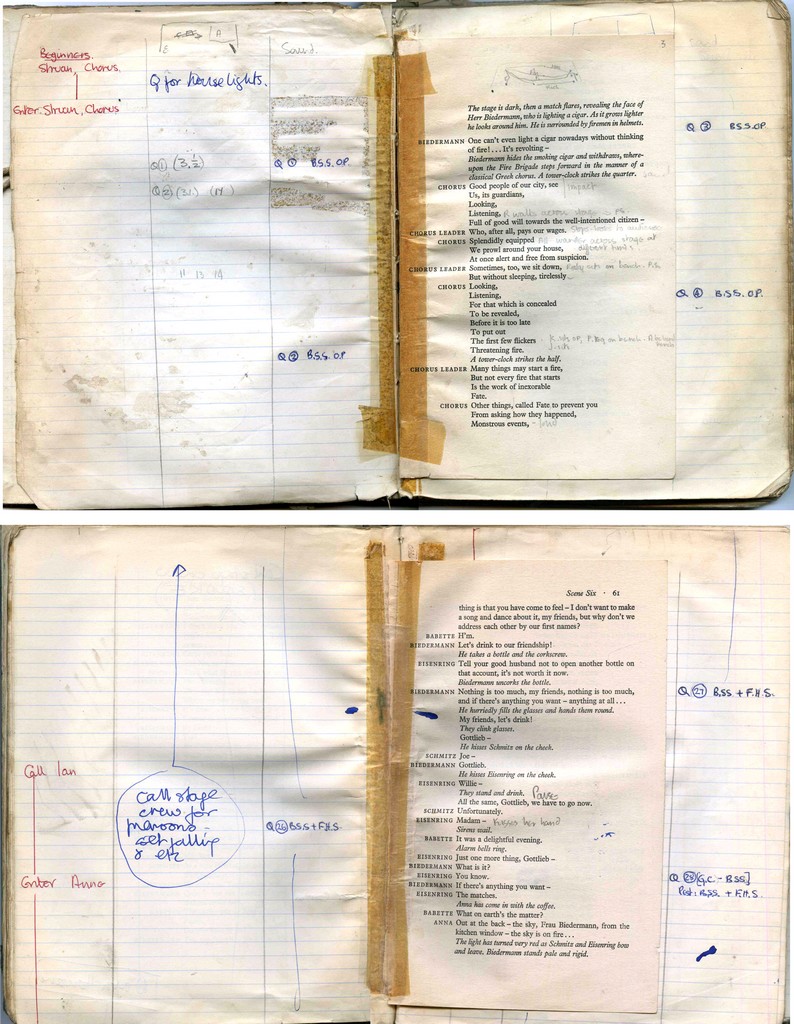 Beginners.
Struan, Chorus.
Enter. Struan, Chorus
A
E
Q for house lights.
Q① (3.½)
Q② (3.1) (14)
11 13 14
Sound.
Q ① B.S.S. O.P.
Q ② B.S.S. O.P
3
The stage is dark, then a match flares, revealing the face of
Herr Biedermann, who is lighting a cigar. As it grows lighter
he looks around him. He is surrounded by firemen in helmets.
BIEDERMANN One can't even light a cigar nowadays without thinking
of fire! . . . It's revolting –
Biedermann hides the smoking cigar and withdraws, where-
upon the Fire Brigade steps forward in the manner of a
classical Greek chorus. A tower-clock strikes the quarter. sound
CHORUS Good people of our city, see impact
Us, its guardians,
Looking,
Listening, walks across stage
Full of good will towards the well-intentioned citizen –
CHORUS LEADER Who, after all, pays our wages.
CHORUS Splendidly equipped wander across stage at
We prowl around your house, different times.
At once alert and free from suspicion.
CHORUS LEADER Sometimes, too, we sit down, sits on bench. P.S.
But without sleeping, tirelessly
CHORUS Looking,
Listening,
For that which is concealed
To be revealed,
Before it is too late
To put out
The first few flickers
Threatening fire.
A tower-clock strikes the half.
CHORUS LEADER Many things may start a fire,
But not every fire that starts
Is the work of inexorable
Fate.
CHORUS Other things, called Fate to prevent you
From asking how they happened,
Monstrous events,
sound
Q ③ B.S.S. O.P.
Q ④ B.S.S. O.P.
Call Ian
Enter Anna
Call stage
crew for
maroons -
set falling
& etc
Q ㉖ B.S.S + F.H.S.
Scene Six · 61
thing is that you have come to feel – I don't want to make
a song and dance about it, my friends, but why don't we
address each other by our first names?
BABETTE H'm.
BIEDERMANN Let's drink to our friendship!
He takes a bottle and the corkscrew.
EISENRING Tell your good husband not to open another bottle on
that account, it's not worth it now.
Biedermann uncorks the bottle.
BIEDERMANN Nothing is too much, my friends, nothing is too much,
and if there's anything you want – anything at all . . .
He hurriedly fills the glasses and hands them round.
My friends, let's drink!
They clink glasses.
Gottlieb –
He kisses Schmitz on the cheek.
SCHMITZ Joe –
BIEDERMANN Gottlieb.
He kisses Eisenring on the cheek.
EISENRING Willie –
They stand and drink. Pause
All the same, Gottlieb, we have to go now.
SCHMITZ Unfortunately.
EISENRING Madam – Kisses her hand
Sirens wail.
BABETTE It was a delightful evening.
Alarm bells ring.
EISENRING Just one more thing, Gottlieb –
BIEDERMANN What is it?
EISENRING You know.
BIEDERMANN If there's anything you want –
EISENRING The matches.
Anna has come in with the coffee.
BABETTE What on earth's the matter?
ANNA Out at the back – the sky, Frau Biedermann, from the
kitchen window – the sky is on fire . . .
The light has turned very red as Schmitz and Eisenring bow
and leave. Biedermann stands pale and rigid.
Q ㉗ B.S.S + F.H.S.
Q ㉘ [G.C. - BSS]
Post: B.S.S. + F.H.S.